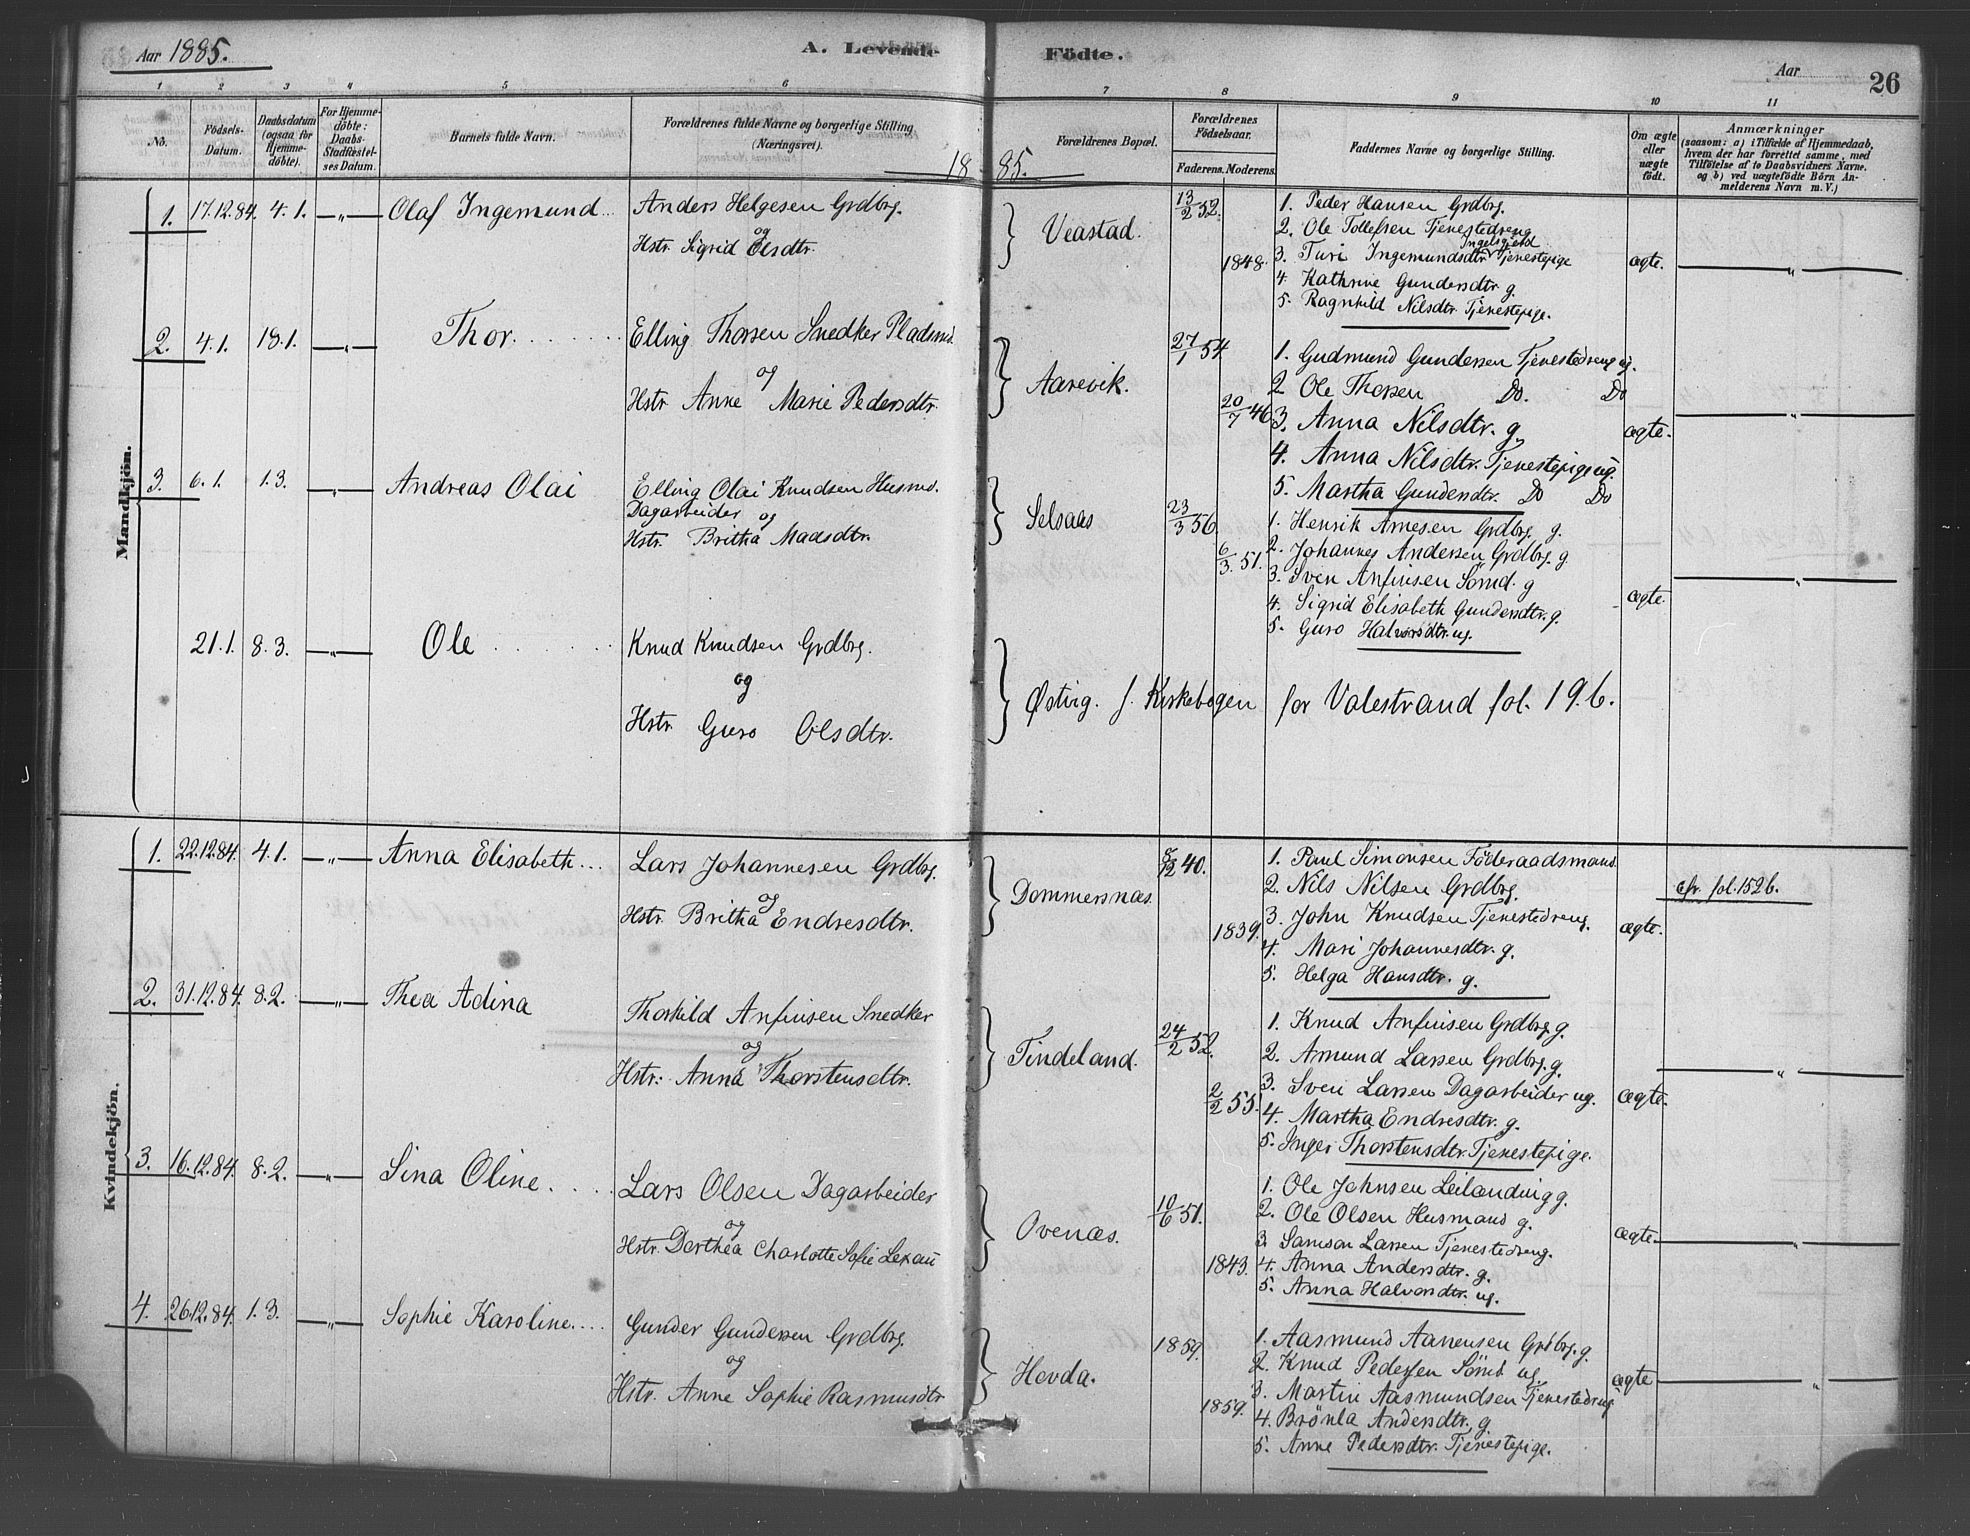 Aar 1885.
A. Levende Födte.
Aar
26
1 2 3 4 5 6 7 8 9 10 11
No.
Födsels-Datum.
Daabsdatum (ogsaa for Hjemme-döbte).
For Hjemme-döbte: Daabs-Stadfæstel-ses Datum.
Barnets fulde Navn.
Forældrenes fulde Navne og borgerlige Stilling (Næringsvei).
Forældrenes Bopæl.
Forældrenes Födselsaar.
Faderens. Moderens.
Faddernes Navne og borgerlige Stilling.
Om ægte eller uægte födt.
Anmærkninger
(saasom: a) i Tilfælde af Hjemmedaab, hvem der har forrettet samme, med Tilföielse af to Daabsvidners Navne, og b) ved uægtefödte Börn An-melderens Navn m. V.)
1885.
Mandkjön.
1. 17.12.84. 4.1. —„— Olaf Ingemund..
Anders Helgesen Grdbrg.
og
Hstr. Sigrid Olsdtr.
Veastad.
13/2 52.
1848.
1. Peder Hansen Grdbrg.
2. Ole Tollefsen Tjenestedreng
Ingelsgjerd
3. Turi Ingemundsdtr Tjenestepige
4. Kathrine Gundersdtr g.
5. Ragnhild Nilsdtr. Tjenestepige.
ægte.
„
2. 4.1. 18.1. —„— Thor.......
Elling Thorsen Snedker Pladsmd.
og
Hstr. Anne Marie Pedersdtr.
Aarevik.
27/1 54.
20/7 46
1. Gudmund Gundersen Tjenestedreng ug.
2 Ole Thorsen Do. Do
3. Anna Nilsdtr. g.
4. Anna Nilsdtr. Tjenestepige ug.
5. Martha Gundersdtr. Do Do
ægte.
„
3. 6.1. 1.3. —„— Andreas Olai
Elling Olai Knudsen Husmd.
Dagarbeider og
Hstr. Britha Madsdtr.
Selsaas
23/3 56.
6/3 51.
1. Henrik Arnesen Grdbrg. g.
2. Johannes Andersen Grdbrg. g
3. Sven Anfinsen Sömd. g
4. Sigrid Elisabeth Gundersdtr. g.
5. Guro Halvorsdtr. ug.
ægte.
„
21.1. 8.3. —„— Ole......
Knud Knudsen Grdbrg.
og
Hstr. Guro Olsdtr.
Østvig. f. Kirkebogen for Valestrand fol. 19b.
Kvindekjön.
1. 22.12.84. 4.1. —„— Anna Elisabeth...
Lars Johannesen Grdbrg.
og
Hstr. Britha Endresdtr.
Dommersnæs.
8/12 40.
1839.
1. Paul Simonsen Föderaadsmand.
2. Nils Nilsen Grdbrg.
3. John Knudsen Tjenestedreng.
4. Mari Johannesdtr. g.
5. Helga Hansdtr. g.
ægte.
cfr. fol. 152b.
2. 31.12.84. 8.2. —„— Thea Adina
Thorkild Anfinsen Snedker
og
Hstr. Anna Thorstensdtr.
Tindeland.
24/2 52.
2/2 55.
1. Knud Anfinsen Grdbrg. g.
2. Amund Larsen Grdbrg. g.
3. Sven Larsen Dagarbeider ug.
4. Martha Endresdtr. g.
5. Inger Thorstensdtr. Tjenestepige.
ægte.
„
3. 16.12.84. 8.2. —„— Sina Oline....
Lars Olsen Dagarbeider
og
Hstr. Dorthea Charlotte Sofie Lexau
Ovenæs.
10/6 51.
1843.
1. Ole Johnsen Leilænding g.
2. Ole Olsen Husmand g.
3. Samson Larsen Tjenestedreng.
4. Anna Andersdtr. g.
5. Anna Halvorsdtr. ug.
ægte.
„
4. 26.12.84. 1.3. —„— Sophie Karoline....
Gunder Gundersen Grdbrg.
og
Hstr. Anne Sophie Rasmusdtr
Hovda.
1859.
1859.
1. Aasmund Aanensen Grdbrg. g.
2. Knud Pedersen Sömd ug
3. Martin Aasmundsen Tjenestedreng
4. Brönla Andersdtr. g
5. Anne Pedersdtr. Tjenestepige.
ægte
„